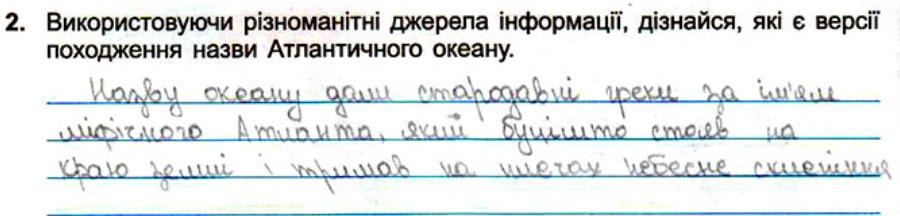 2. Використовуючи різноманітні джерела інформації, дізнайся, які є версії
походження назви Атлантичного океану.
Назву океану дали стародавні греки за ім'ям
міфічного Атланта, який буцімто стояв на
краю землі і тримав на плечах небесне склепіння